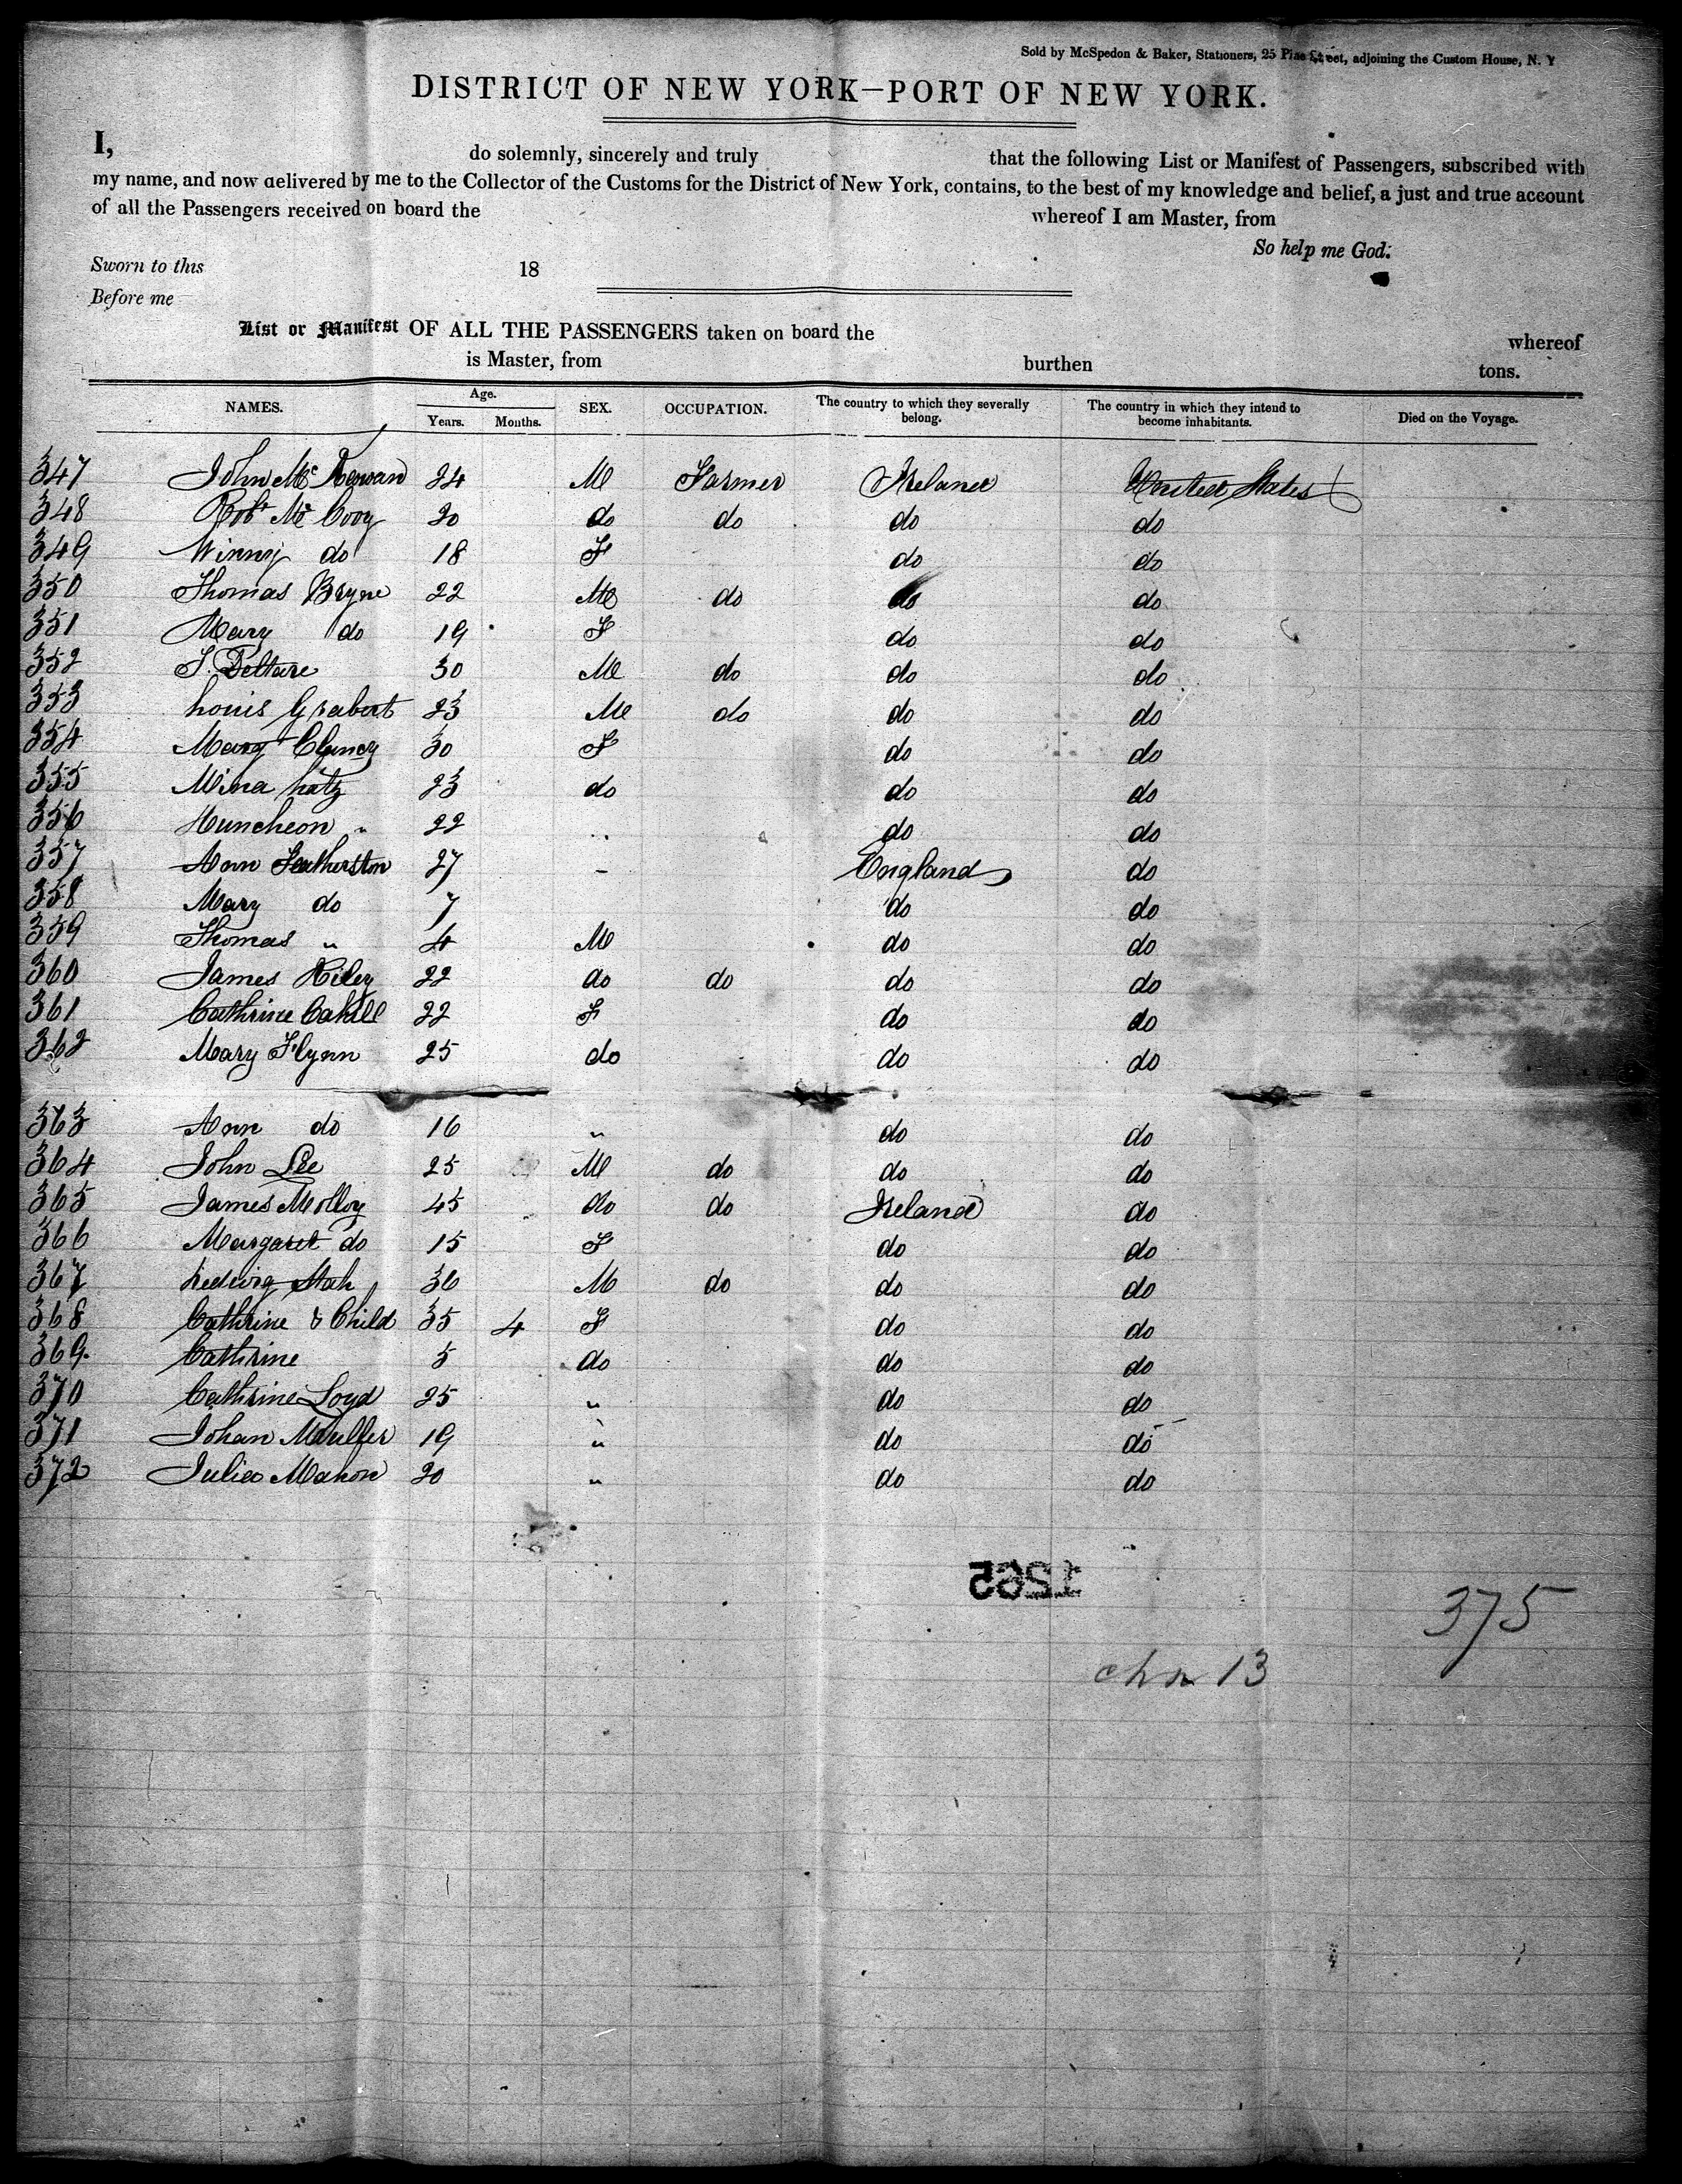 Sold by McSpedon & Baker, Stationers, 25 Pine Street, adjoining the Custom House, N. Y
DISTRICT OF NEW YORK—PORT OF NEW YORK.
I, do solemnly, sincerely and truly that the following List or Manifest of Passengers, subscribed with
my name, and now delivered by me to the Collector of the Customs for the District of New York, contains, to the best of my knowledge and belief, a just and true account
of all the Passengers received on board the whereof I am Master, from
So help me God.
Sworn to this 18
Before me
List or Manifest OF ALL THE PASSENGERS taken on board the whereof
is Master, from burthen tons.
NAMES. Age. Years. Months. SEX. OCCUPATION. The country to which they severally belong. The country in which they intend to become inhabitants. Died on the Voyage.
347 John Mc 24 M Farmer Ireland United States
348 Robt Mc Cooy 20 do do do do
349 Winny do 18 F do do
350 Thomas Bryne 22 M do do do
351 Mary do 19 F do do
352 30 M do do do
353 Louis Grabert 23 M do do do
354 Mary Clancy 30 F do do
355 Mina Latz 23 do do do
356 Huncheon " 22 " do do
357 Ann Featherston 27 - England do
358 Mary do 7 do do
359 Thomas " 4 M do do
360 James Riley 22 do do do do
361 Cathrine Cahill 22 F do do
362 Mary Flynn 25 do do do
363 Ann do 16 " do do
364 John Lee 25 M do do do
365 James Molloy 45 do do Ireland do
366 Margaret do 15 F do do
367 Ledwig 36 M do do do
368 Cathrine & Child 35 4 F do do
369. Cathrine 5 do do do
370 Cathrine Loyd 25 " do do
371 Johan Muller 19 " do do
372 Julia Mahon 20 " do do
1265
375
chn 13